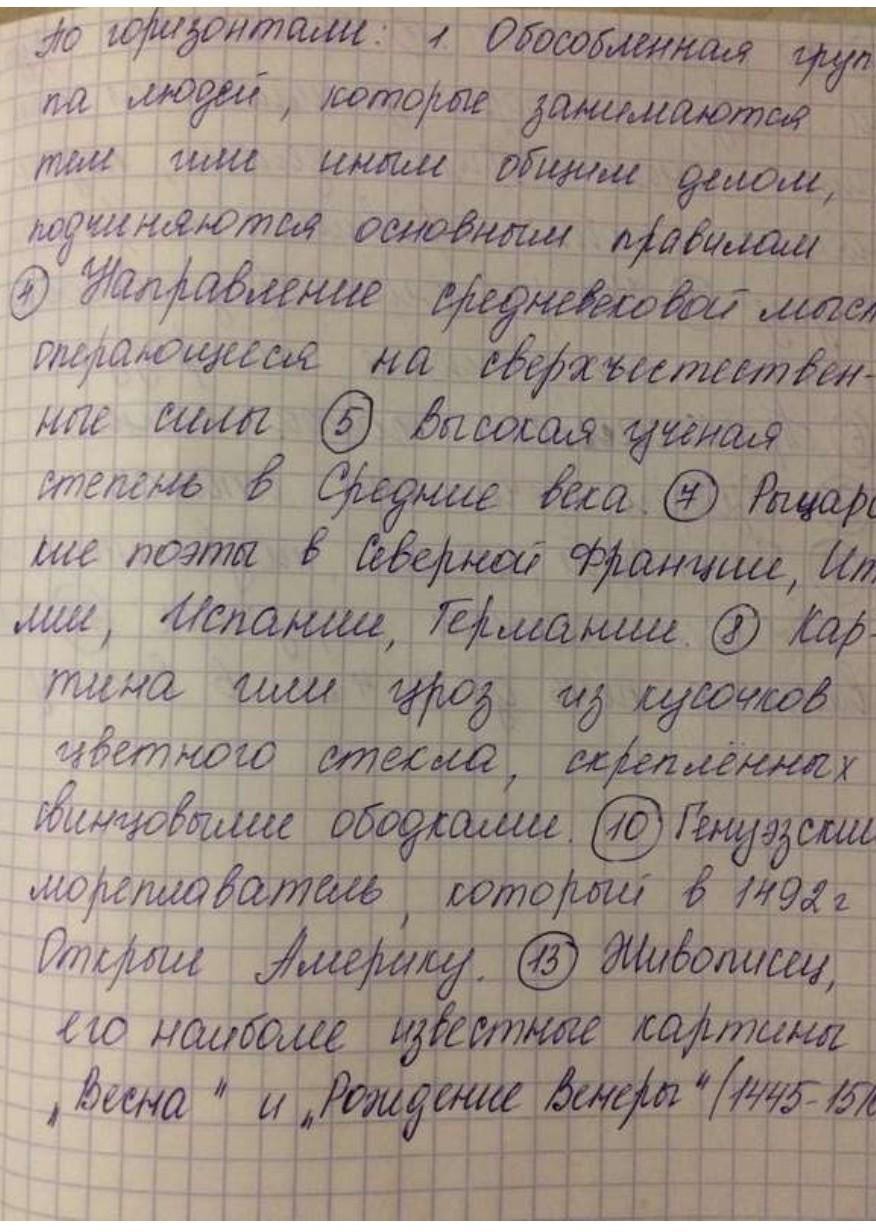 По горизонтали: 1. Обособленная груп
па людей, которые занимаются
тем или иным общим делом,
подчиняются основным правилам
4 Направление средневековой мысл
операющееся на сверхъестествен-
ные силы. 5 Высокая учёная
степень в Средние века. 7 Рыцарс
кие поэты в Северной Франции, Ит
лии, Испании, Германии. 8 Кар-
тина или узоз из кусочков
цветного стекла, скреплённых
свинцовыми ободками. 10 Генуэзский
мореплаватель, который в 1492 г
Открыл Америку. 13 Живописец,
его наиболе известные картины
„Весна" и „Рождение Венеры" (1445-151